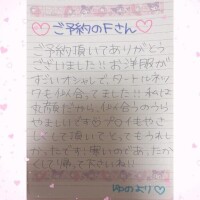 ご予約のFさん
ご予約頂いてありがとう
ございました!!お洋服が
すごいオシャレで、タートルネッ
クを似合ってました!!私は
丸顔だから、似合うのうら
やましいです♡プロイもやさ
しくして頂いてとってもうれし
かったです!!寒いので、あったか
くして帰って下さいね!!
より♡